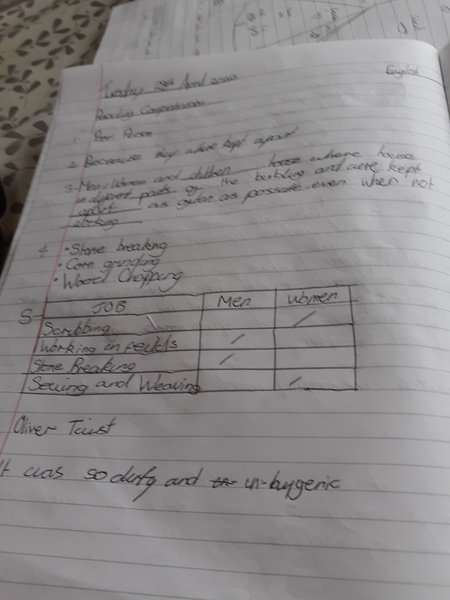 Tuesday 28th April 2020 English
Reading Comprehension
1. Poor Person
2. they where kept apart
3. Men, Women and children where
in diferent parts of the building and were kept
apart as possible even when not
4. • Stone breaking
• Corn grinding
• Wood Chopping
5 JOB Men Women
Scrubbing /
Working in /
Stone Breaking /
Sewing and Weaving /
Oliver Twist
It was so and